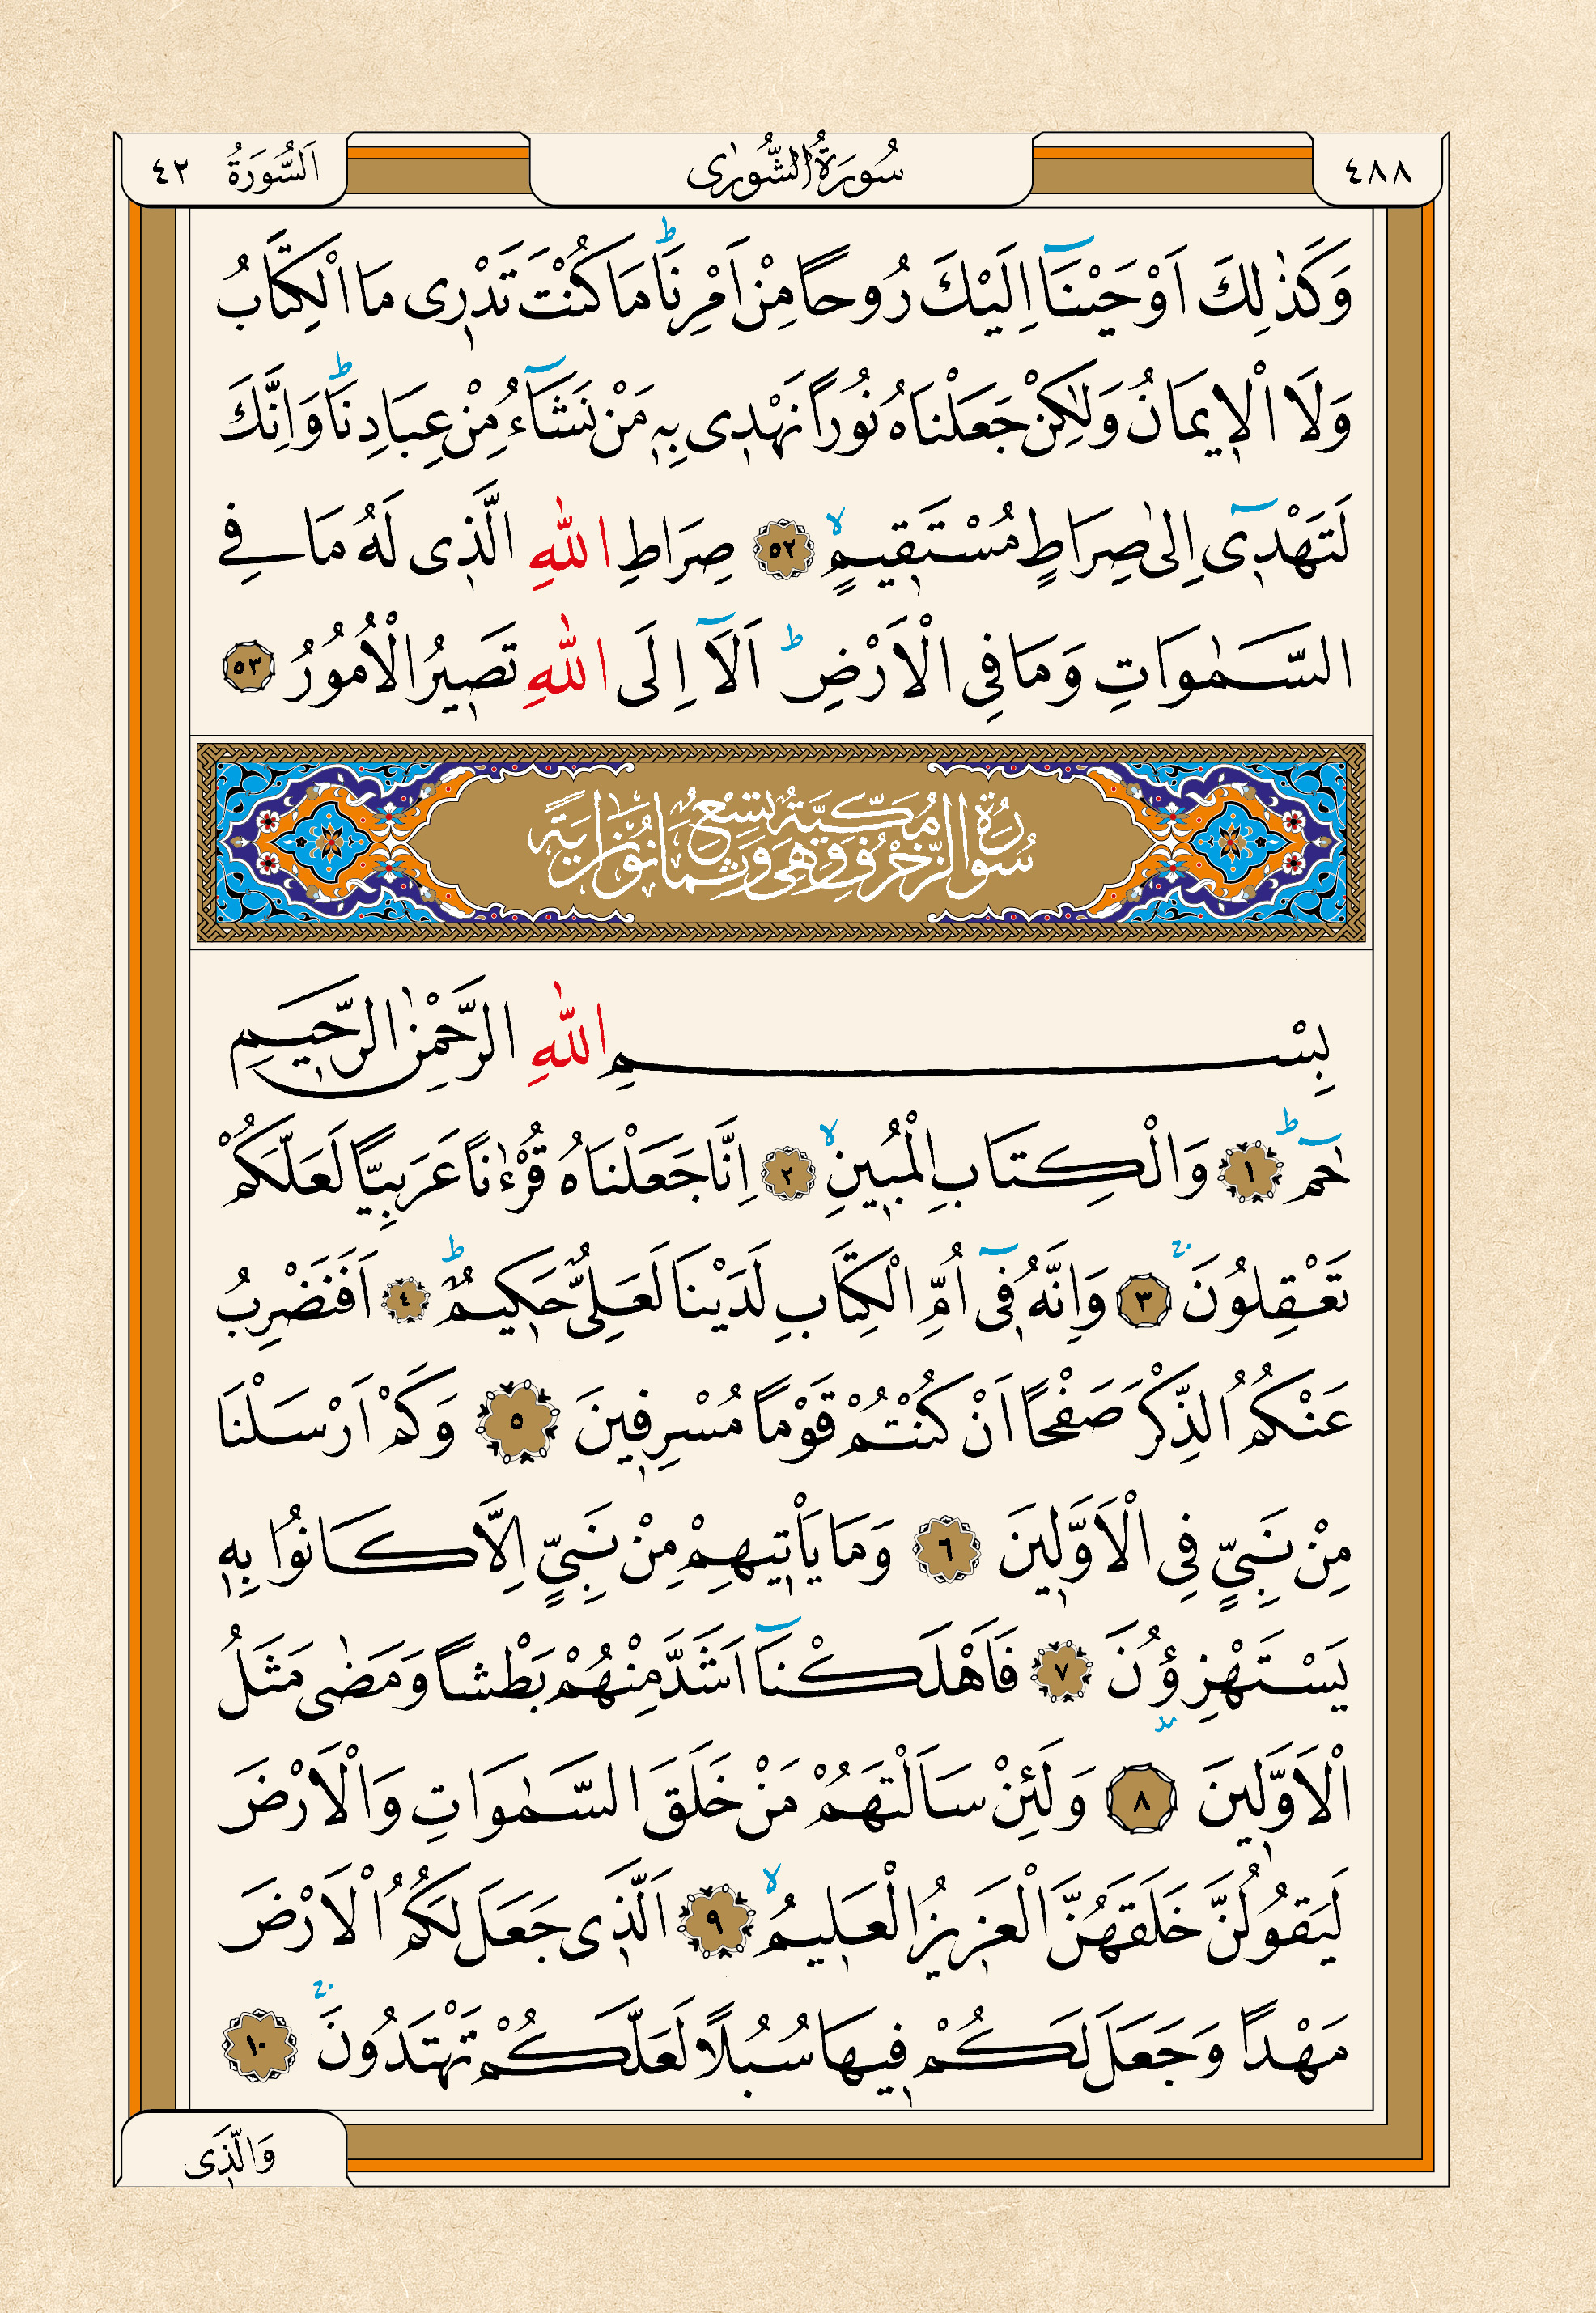 ٤٨٨
سُورَةُ الشُّورٰى
اَلسُّورَةُ ٤٢
وَكَذٰلِكَ اَوْحَيْنَٓا اِلَيْكَ رُوحًا مِنْ اَمْرِنَاۜ مَا كُنْتَ تَدْرٖى مَا الْكِتَابُ
وَلَا الْاٖيمَانُ وَلٰكِنْ جَعَلْنَاهُ نُورًا نَهْدٖى بِهٖ مَنْ نَشَٓاءُ مِنْ عِبَادِنَاۜ وَاِنَّكَ
لَتَهْدٖٓى اِلٰى صِرَاطٍ مُسْتَقٖيمٍۙ ﴿٥٢﴾ صِرَاطِ اللّٰهِ الَّذٖى لَهُ مَا فِى
السَّمٰوَاتِ وَمَا فِى الْاَرْضِۜ اَلَٓا اِلَى اللّٰهِ تَصٖيرُ الْاُمُورُ ﴿٥٣﴾
سُورَةُ الزُّخْرُفِ مَكِّيَّةٌ وَهِىَ تِسْعٌ وَثَمَانُونَ اٰيَةً
بِسْمِ اللّٰهِ الرَّحْمٰنِ الرَّحٖيمِ
حٰمٓۜ ﴿١﴾ وَالْكِتَابِ الْمُبٖينِۙ ﴿٢﴾ اِنَّا جَعَلْنَاهُ قُرْءٰنًا عَرَبِيًّا لَعَلَّكُمْ
تَعْقِلُونَۚ ﴿٣﴾ وَاِنَّهُ فٖٓى اُمِّ الْكِتَابِ لَدَيْنَا لَعَلِىٌّ حَكٖيمٌۜ ﴿٤﴾ اَفَنَضْرِبُ
عَنْكُمُ الذِّكْرَ صَفْحًا اَنْ كُنْتُمْ قَوْمًا مُسْرِفٖينَ ﴿٥﴾ وَكَمْ اَرْسَلْنَا
مِنْ نَبِيٍّ فِى الْاَوَّلٖينَ ﴿٦﴾ وَمَا يَاْتٖيهِمْ مِنْ نَبِيٍّ اِلَّا كَانُوا بِهٖ
يَسْتَهْزِؤُنَ ﴿٧﴾ فَاَهْلَكْنَٓا اَشَدَّ مِنْهُمْ بَطْشًا وَمَضٰى مَثَلُ
الْاَوَّلٖينَ ﴿٨﴾ وَلَئِنْ سَاَلْتَهُمْ مَنْ خَلَقَ السَّمٰوَاتِ وَالْاَرْضَ
لَيَقُولُنَّ خَلَقَهُنَّ الْعَزٖيزُ الْعَلٖيمُۙ ﴿٩﴾ اَلَّذٖى جَعَلَ لَكُمُ الْاَرْضَ
مَهْدًا وَجَعَلَ لَكُمْ فٖيهَا سُبُلًا لَعَلَّكُمْ تَهْتَدُونَۚ ﴿١٠﴾
وَالَّذٖى